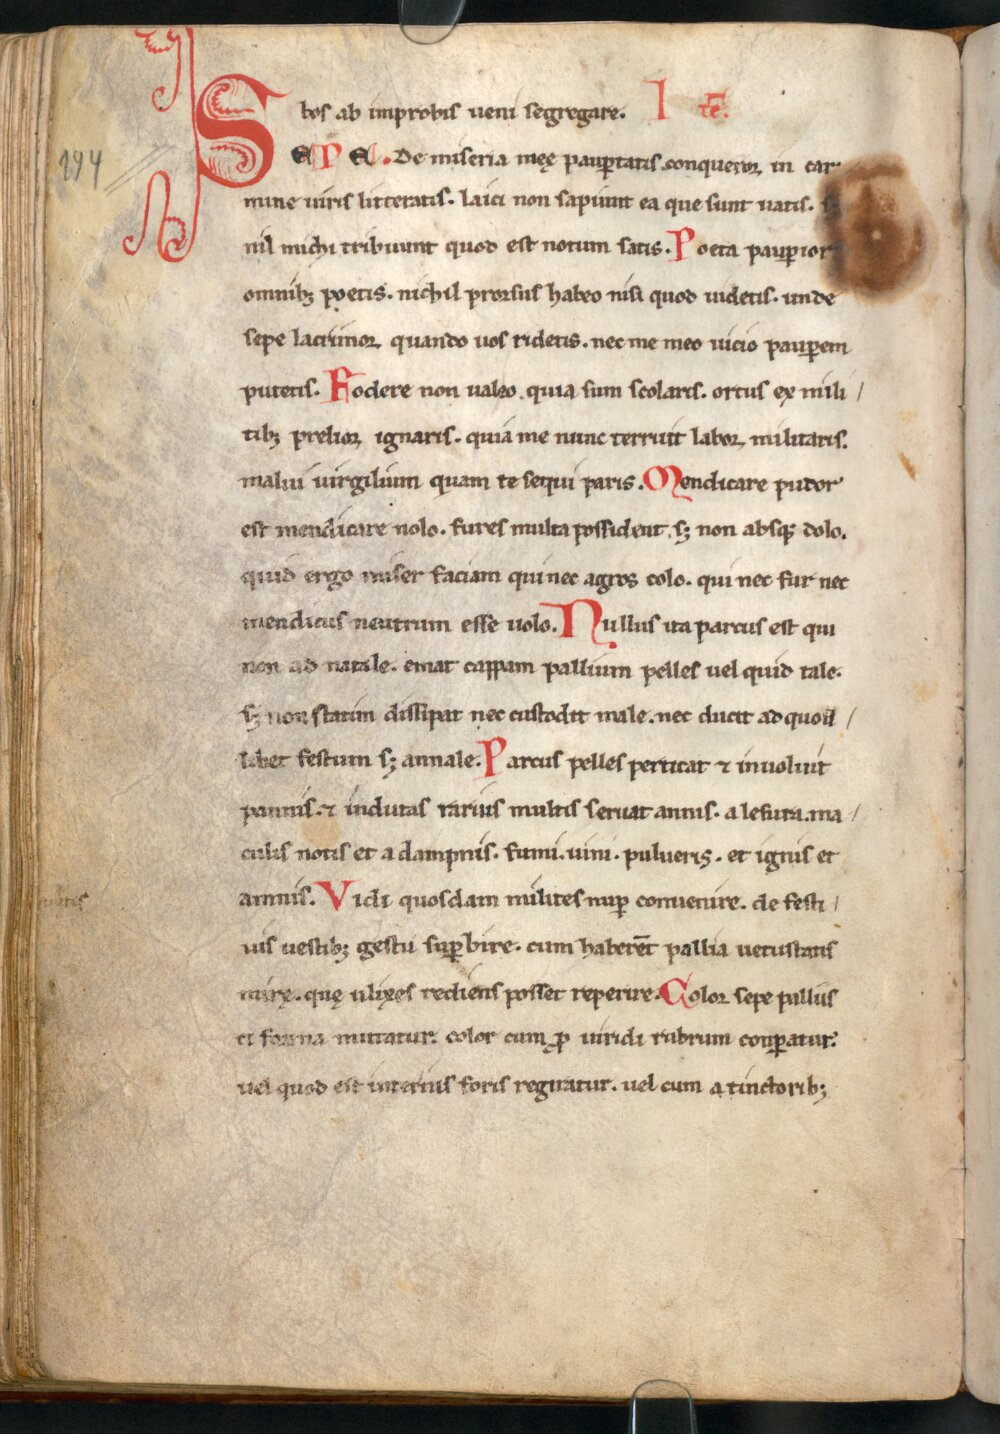 bos ab improbis ueni segregare. I tē.
SEPE. De miseria męę paup̱tatis conqueror in car
mine uiris litteratis. laici non sapiunt ea que sunt uatis.
nil michi tribuunt quod est notum satis. Poeta paup̱ior
omnibꝫ poetis. nichil prorsus habeo nisi quod uidetis. unde
sepe lacrimor quando uos ridetis. nec me meo uicio paup̱em
putetis. Fodere non ualeo quia sum scolaris. ortus ex mili /
tibꝫ prelior ignaris. quia me nunc terruit labor militaris.
malui virgilium quam te sequi paris. Mendicare pudor
est mendicare nolo. fures multa possident sꝫ non absqꝫ dolo.
quid ergo miser faciam qui nec agros colo. qui nec fur nec
mendicus neutrum esse uolo. Nullus ita parcus est qui
non ad natale. emat cappam pallium pelles uel quid tale.
sꝫ non statim dissipat nec custodit male. nec ducit ad quod /
libet festum sꝫ annale. Parcus pelles perticat ⁊ inuoluit
pannis. ⁊ indutas rarius multis seruat annis. a lesura. ma /
culis notis et a dampnis. fumi. uini. pulueris. et ignis et
amnis. Vidi quosdam milites nup̱ conuenire. de festi /
uis uestibꝫ gestu sup̱bire. cum haberēt pallia uetustatis
mirę. quę ulixes rediens posset reperire. Color sepe pallii
et forma mutatur. color cum ꝓ uiridi rubrum conp̱atur.
uel quod est interius foris reguatur. uel cum a tinctoribꝫ
194